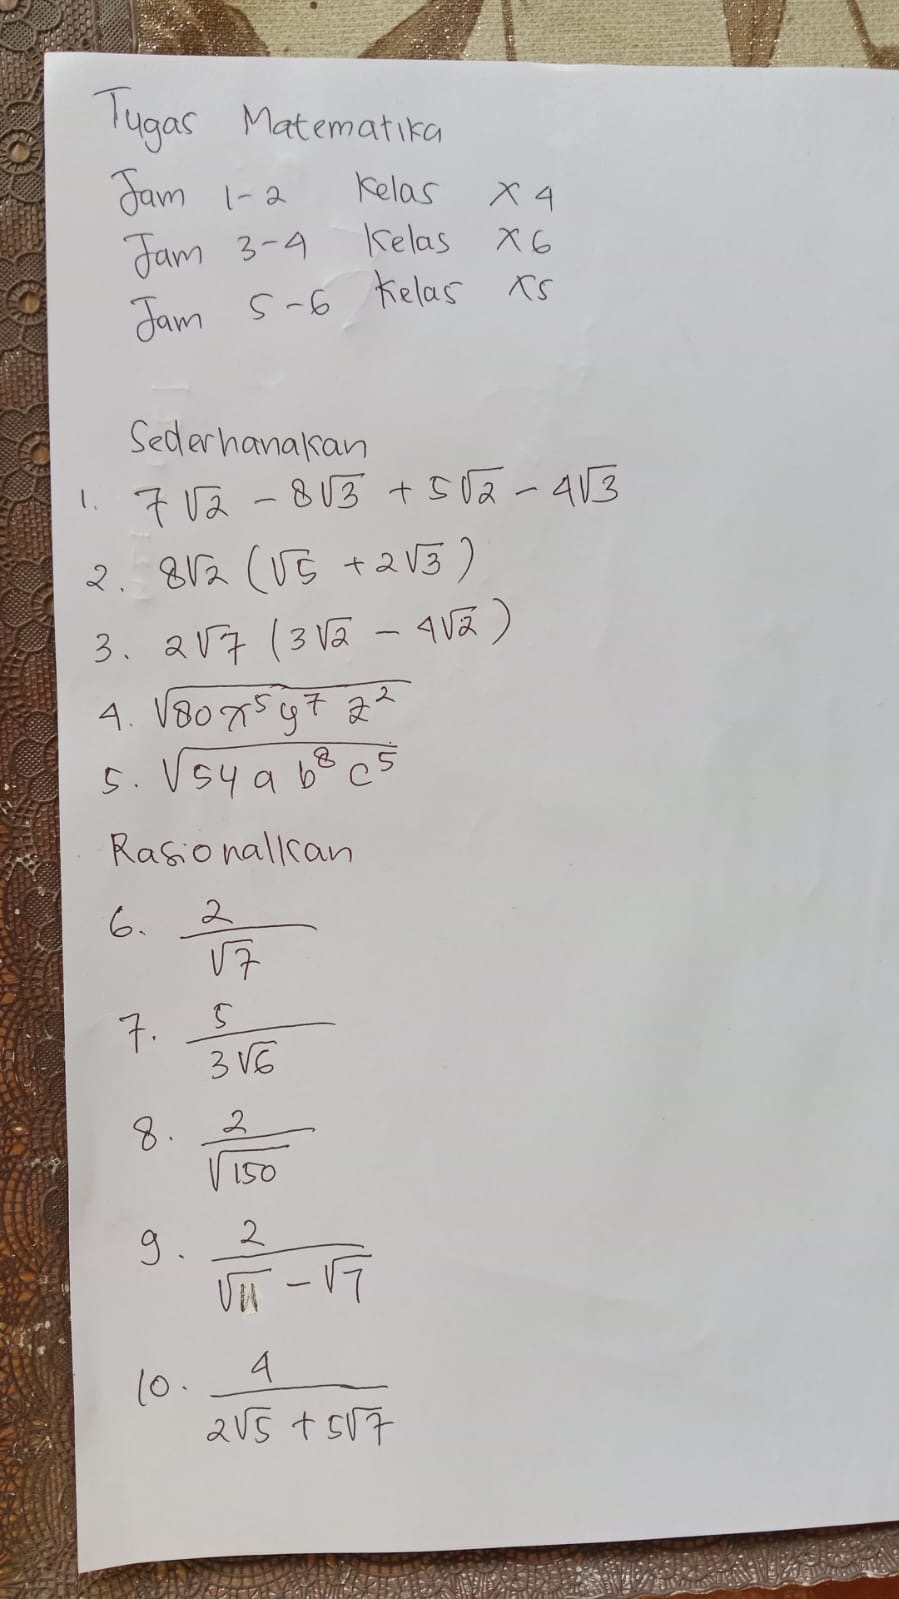 Tugas Matematika
Jam 1-2 Kelas X4
Jam 3-4 Kelas X6
Jam 5-6 Kelas X5
Sederhanakan
1. 7√2 - 8√3 + 5√2 - 4√3
2. 8√2 (√5 + 2√3)
3. 2√7 (3√2 - 4√2)
4. √80x⁵y⁷z²
5. √54ab⁸c⁵
Rasionalkan
6. 2/√7
7. 5/3√6
8. 2/√150
9. 2/√11 - √7
10. 4/2√5 + 5√7